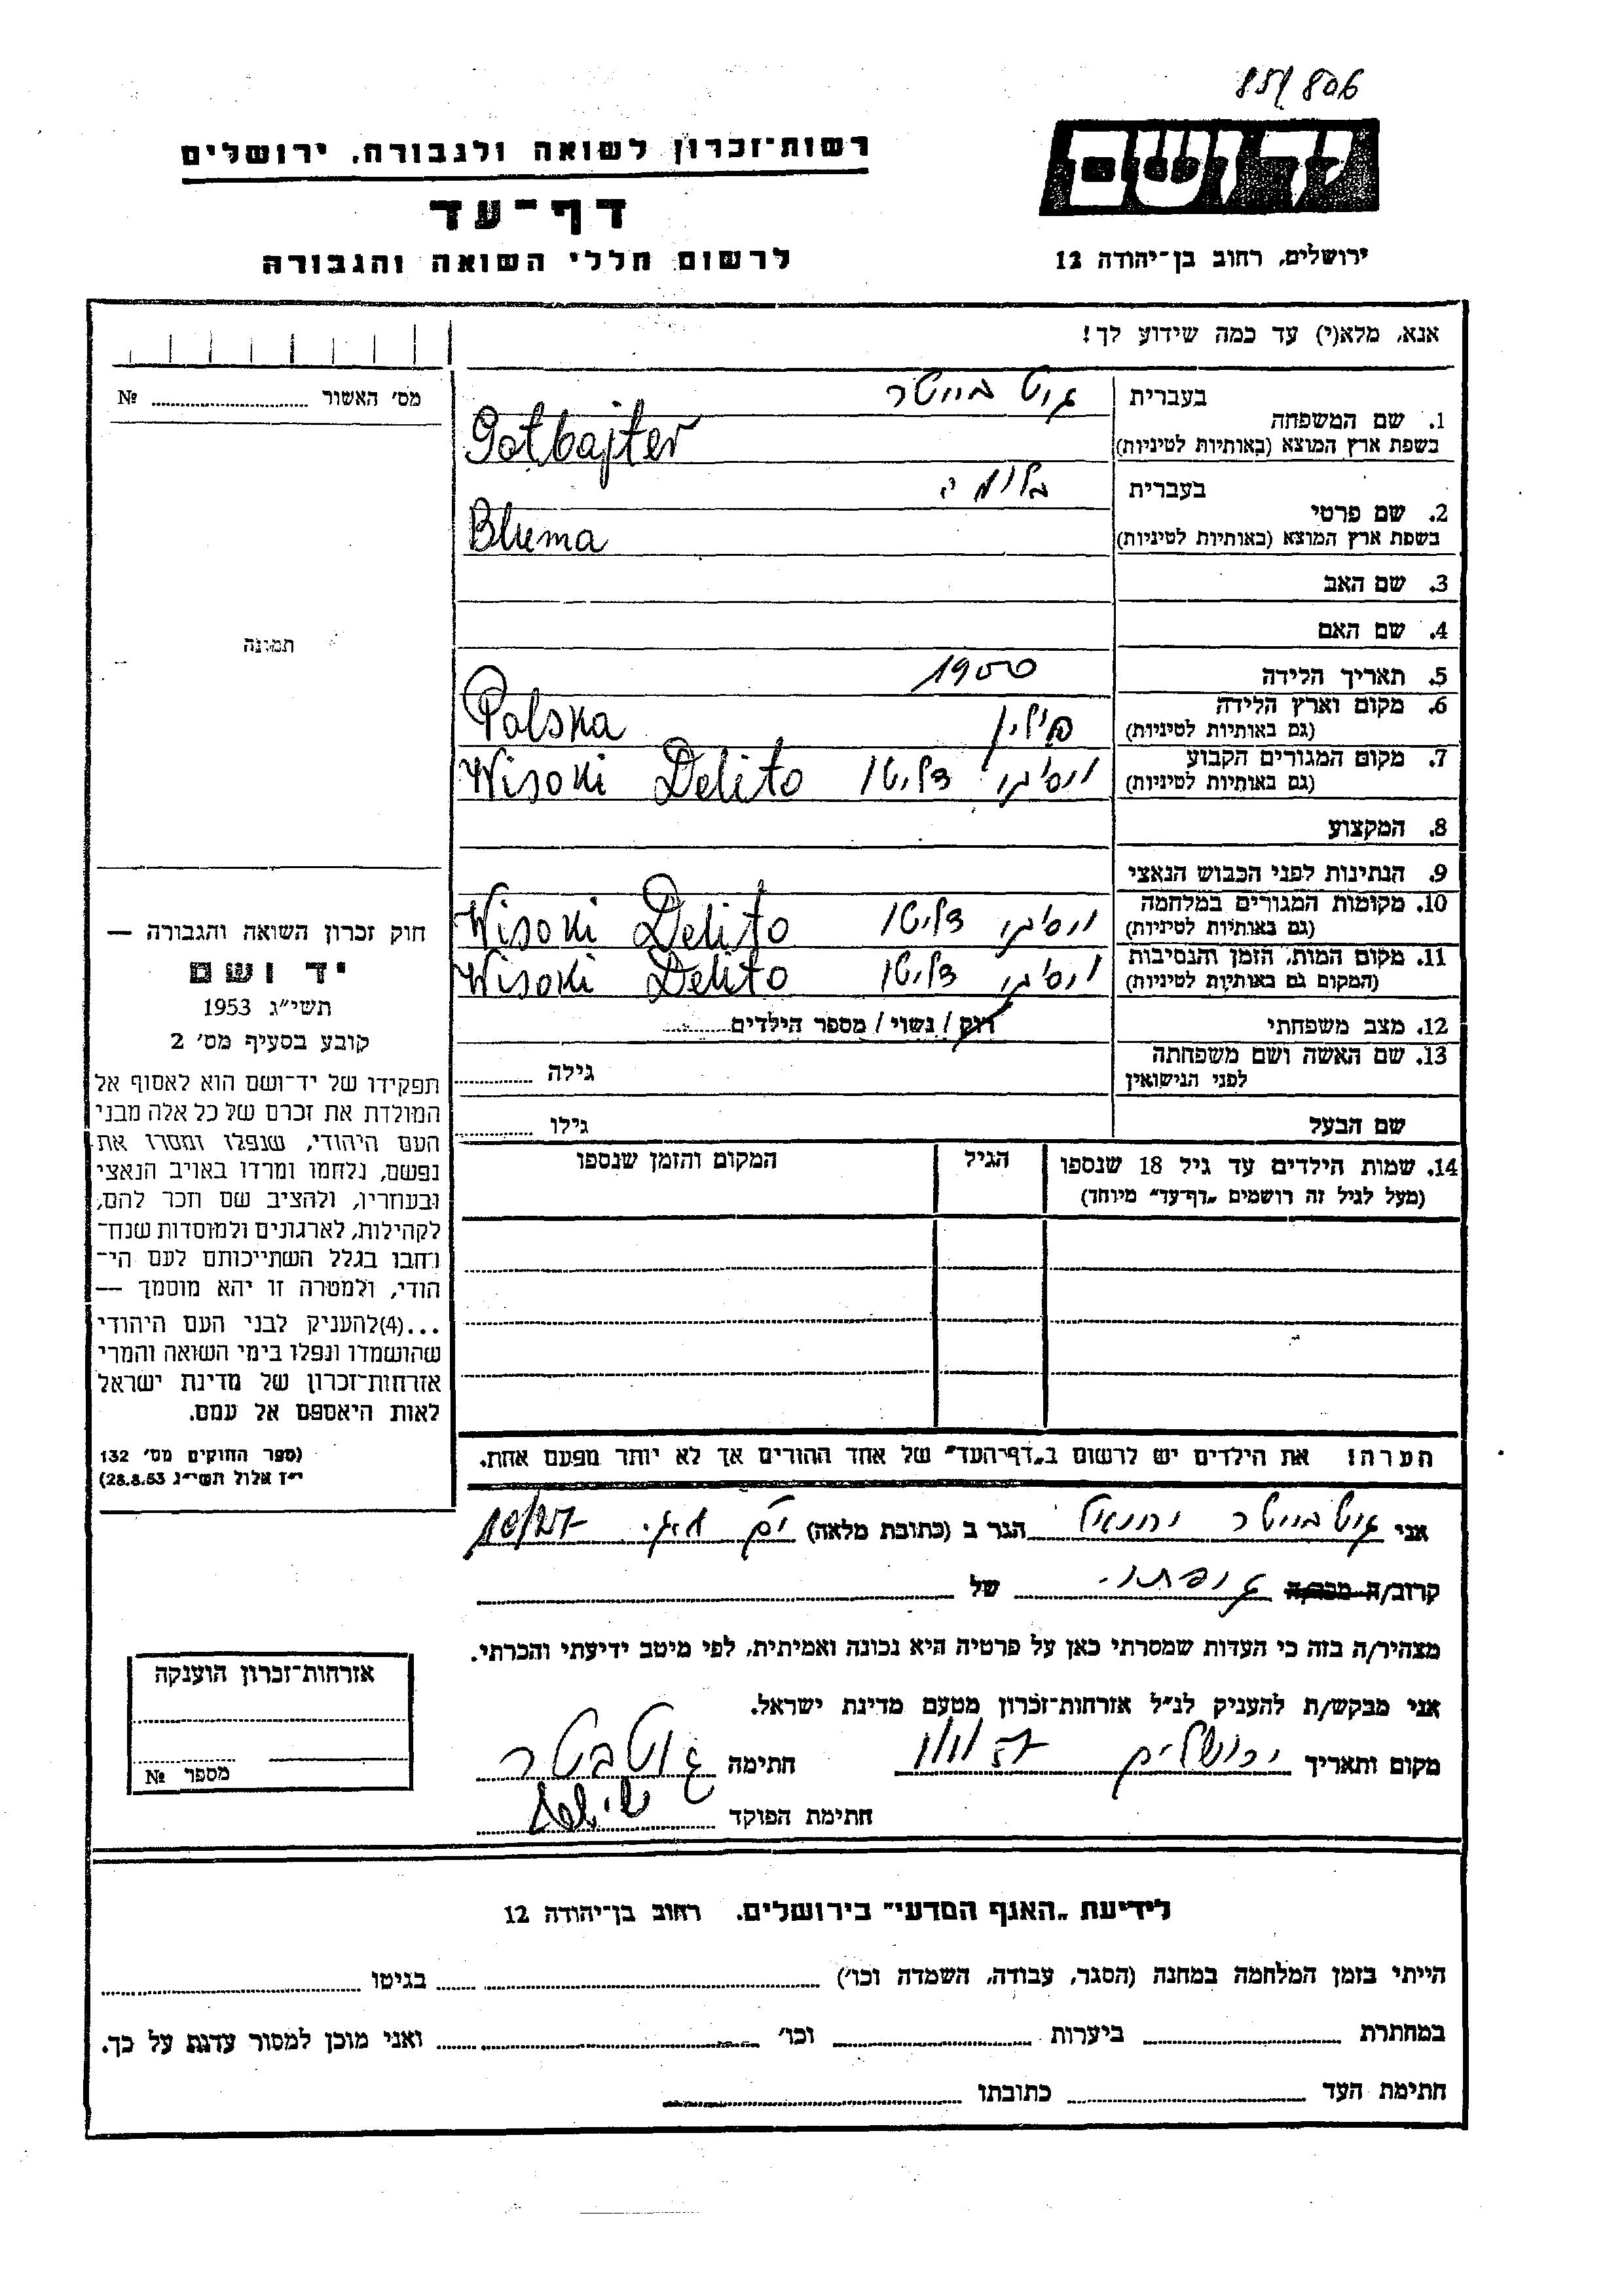 851/806
רשות־זכרון לשואה ולגבורה, ירושלים
יד ושם
דף־עד
לרשום חללי השואה והגבורה
ירושלים, רחוב בן־יהודה 12
אנא, מלא(י) עד כמה שידוע לך!
מס׳ האשור № 
1. שם המשפחה
בעברית גוט בייטר
בשפת ארץ המוצא (באותיות לטיניות) Gotbajter
2. שם פרטי
בעברית בלומה
בשפת ארץ המוצא (באותיות לטיניות) Bluma
3. שם האב
4. שם האם
תמונה
5. תאריך הלידה 1900
6. מקום וארץ הלידה
(גם באותיות לטיניות) פולין Polska
7. מקום המגורים הקבוע
(גם באותיות לטיניות) ויסוקי דליטו Wisoki Delito
8. המקצוע
9. הנתינות לפני הכבוש הנאצי
10. מקומות המגורים במלחמה
(גם באותיות לטיניות) ויסוקי דליטו Wisoki Delito
11. מקום המות, הזמן והנסיבות
(המקום גם באותיות לטיניות) ויסוקי דליטו Wisoki Delito
12. מצב משפחתי רוק / נשוי / מספר הילדים
13. שם האשה ושם משפחתה
לפני הנישואין גילה
שם הבעל גילו
14. שמות הילדים עד גיל 18 שנספו הגיל המקום והזמן שנספו
(מעל לגיל זה רושמים „דף־עד״ מיוחד)
חוק זכרון השואה והגבורה —
יד ושם
תשי״ג 1953
קובע בסעיף מס׳ 2
תפקידו של יד־ושם הוא לאסוף אל
המולדת את זכרם של כל אלה מבני
העם היהודי, שנפלו ומסרו את
נפשם, נלחמו ומרדו באויב הנאצי
ובעוזריו, ולהציב שם וזכר להם,
לקהילות, לארגונים ולמוסדות שנח־
רחבו בגלל השתייכותם לעם הי־
הודי, ולמטרה זו יהא מוסמך —
...(4)להעניק לבני העם היהודי
שהושמדו ונפלו בימי השואה והמרי
אזרחות־זכרון של מדינת ישראל
לאות היאספם אל עמם.
(ספר החוקים מס׳ 132
י״ז אלול תשי״ג 28.8.53)
הערה: את הילדים יש לרשום ב„דף־העד״ של אחד ההורים אך לא יותר מפעם אחת.
אני גוטבייטר הגר ב (כתובת מלאה)
קרוב/ה מכר/ה של
מצהיר/ה בזה כי העדות שמסרתי כאן על פרטיה היא נכונה ואמיתית, לפי מיטב ידיעתי והכרתי.
אני מבקש/ת להעניק לנ״ל אזרחות־זכרון מטעם מדינת ישראל.
מקום ותאריך ירושלים חתימה גוטבטר
חתימת הפוקד
אזרחות־זכרון הוענקה
מספר №
לידיעת „האגף המדעי״ בירושלים, רחוב בן־יהודה 12
הייתי בזמן המלחמה במחנה (הסגר, עבודה, השמדה וכו׳) בגיטו
במחתרת ביערות וכו׳ ואני מוכן למסור עדות על כך.
חתימת העד כתובתו